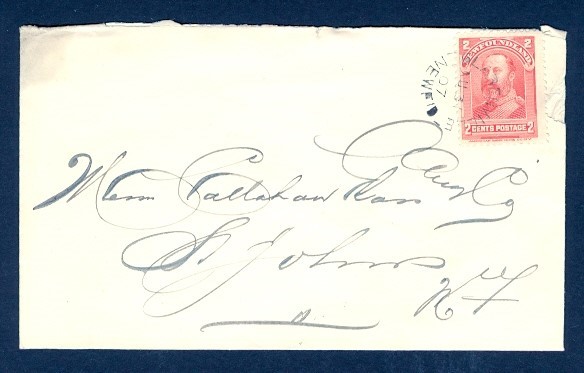 2 2
NEWFOUNDLAND
2 CENTS POSTAGE 2
07
NEWF'D
Messrs Callahan Glass & Co
St Johns
N F